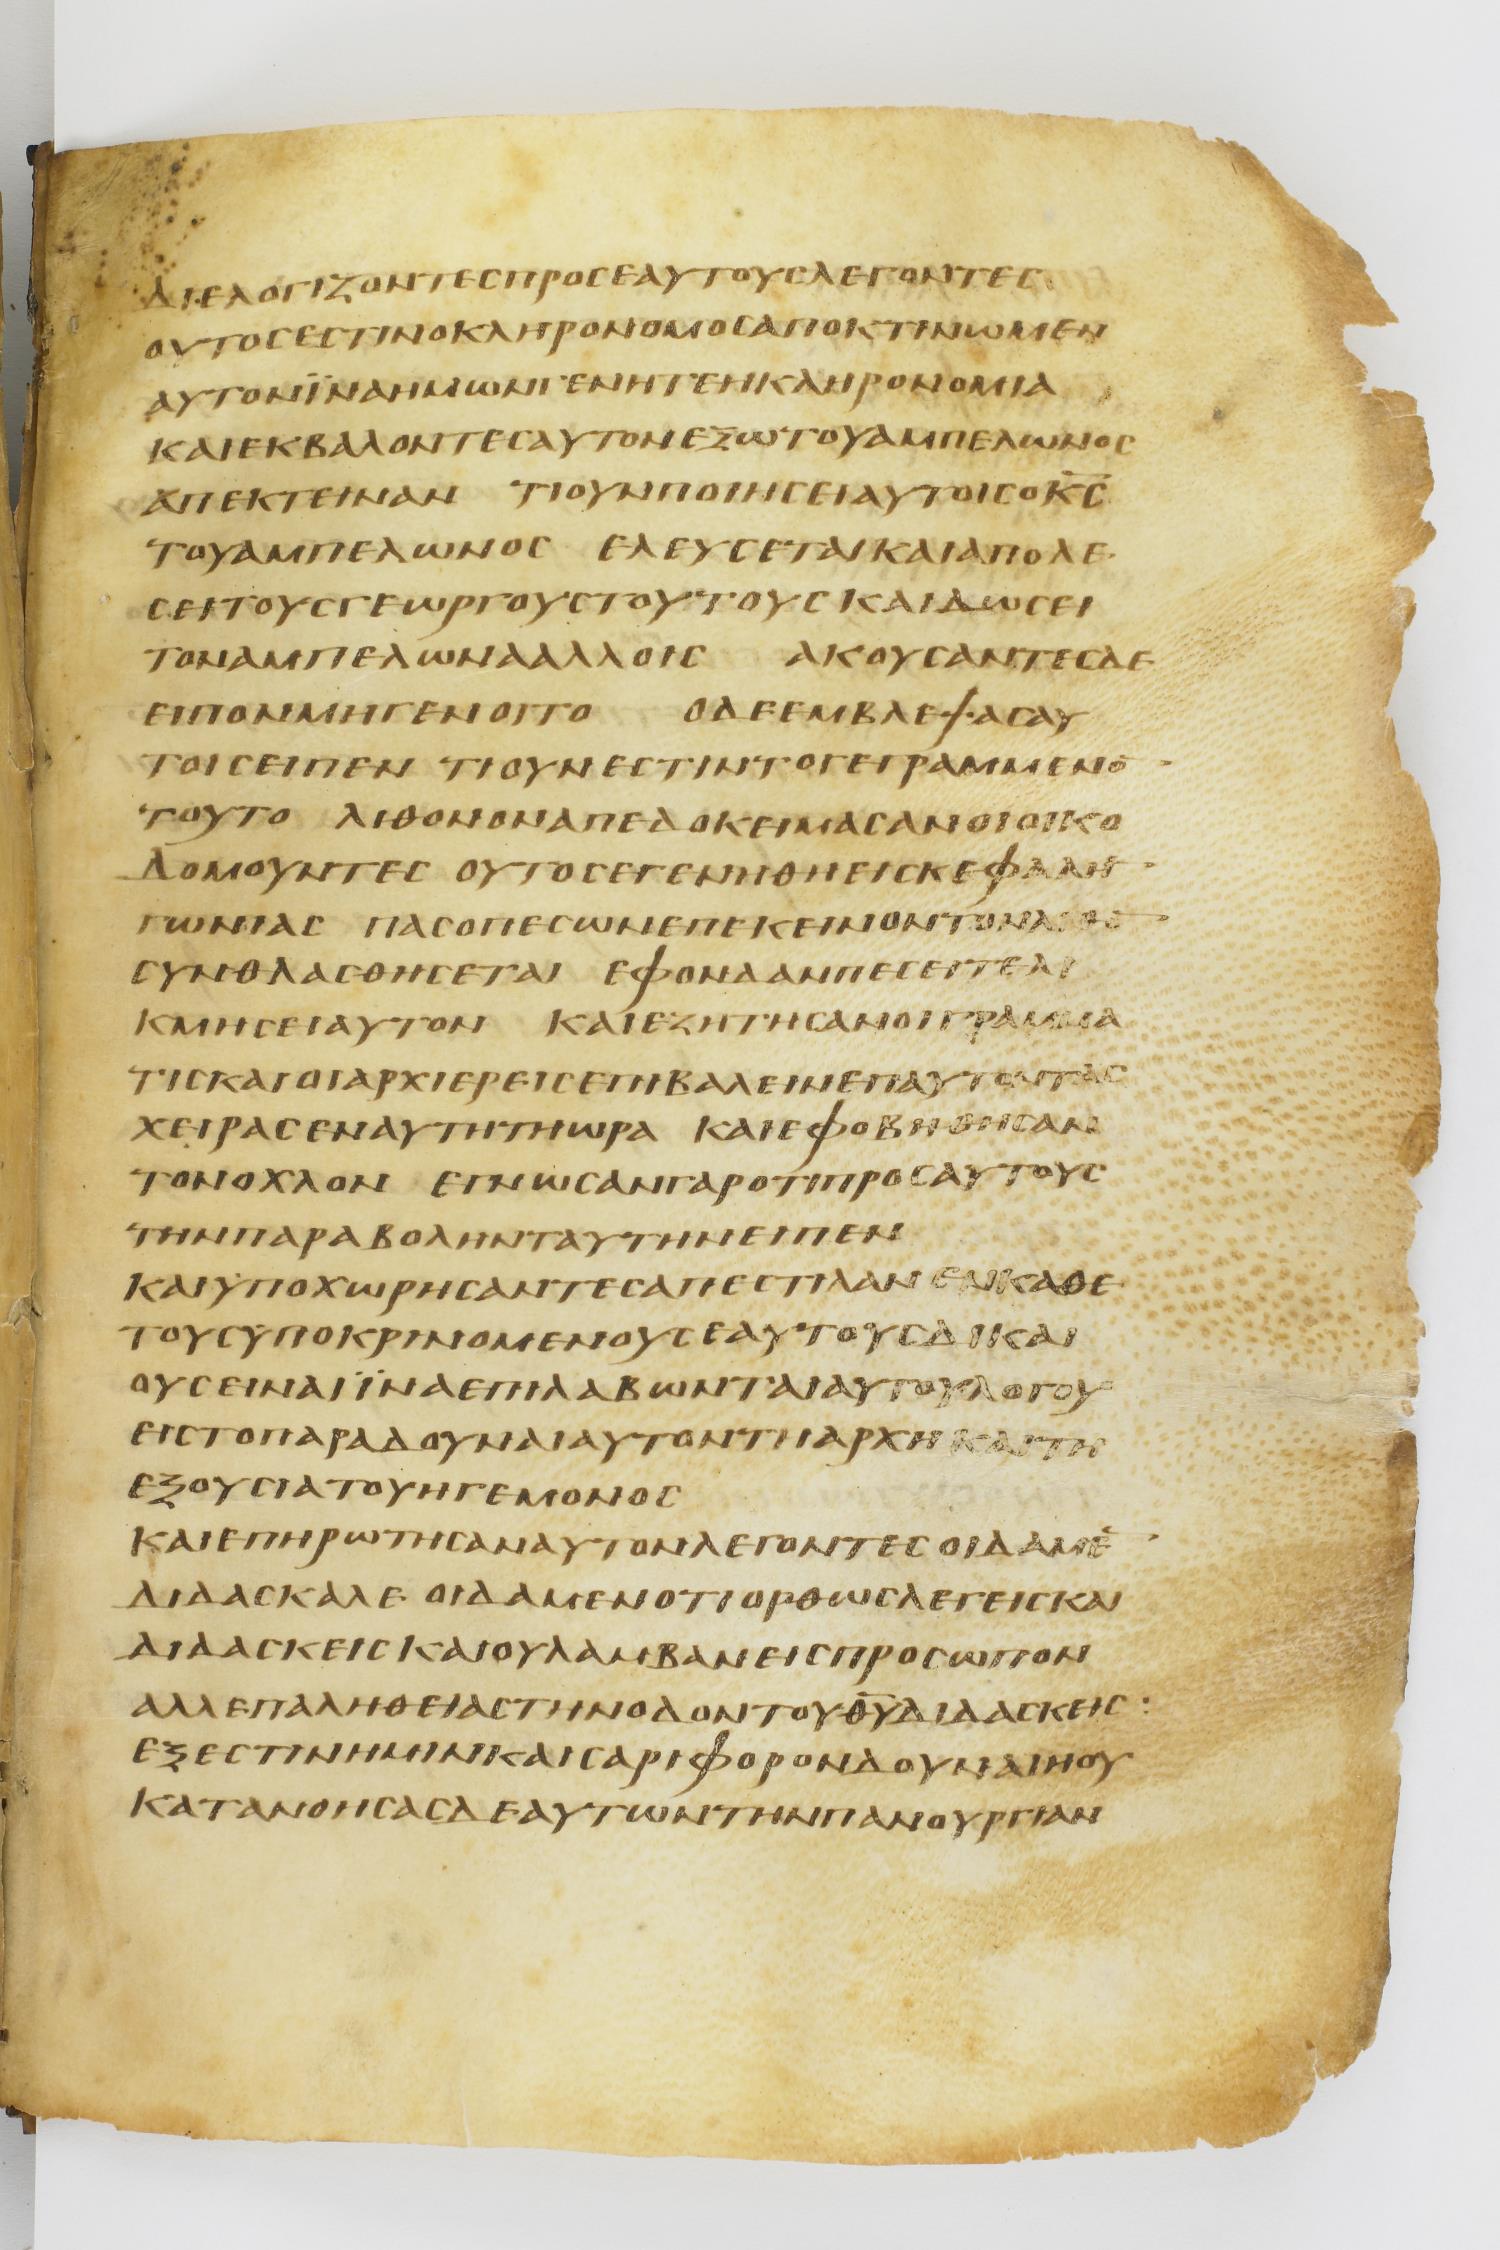 ΔΙΕΛΟΓΙΖΟΝΤΕCΠΡΟCΕΑΥΤΟΥCΛΕΓΟΝΤΕC
ΟΥΤΟCΕCΤΙΝΟΚΛΗΡΟΝΟΜΟCΑΠΟΚΤΙΝΩΜΕΝ
ΑΥΤΟΝΪΝΑΗΜΩΝΓΕΝΗΤΕΗΚΛΗΡΟΝΟΜΙΑ
ΚΑΙΕΚΒΑΛΟΝΤΕCΑΥΤΟΝΕΞΩΤΟΥΑΜΠΕΛΩΝΟC
ΑΠΕΚΤΕΙΝΑΝ ΤΙΟΥΝΠΟΙΗCΕΙΑΥΤΟΙCΟΚ̅C̅
ΤΟΥΑΜΠΕΛΩΝΟC ΕΛΕΥCΕΤΑΙΚΑΙΑΠΟΛΕ
CΕΙΤΟΥCΓΕΩΡΓΟΥCΤΟΥΤΟΥCΚΑΙΔΩCΕΙ
ΤΟΝΑΜΠΕΛΩΝΑΑΛΛΟΙC ΑΚΟΥCΑΝΤΕCΔΕ
ΕΙΠΟΝΜΗΓΕΝΟΙΤΟ ΟΔΕΕΜΒΛΕΨΑCΑΥ
ΤΟΙCΕΙΠΕΝ ΤΙΟΥΝΕCΤΙΝΤΟΓΕΓΡΑΜΜΕΝΟ
ΤΟΥΤΟ ΛΙΘΟΝΟΝΑΠΕΔΟΚΕΙΜΑCΑΝΟΙΟΙΚΟ
ΔΟΜΟΥΝΤΕC ΟΥΤΟCΕΓΕΝΗΘΗΕΙCΚΕΦΑΛΗ
ΓΩΝΙΑC ΠΑCΟΠΕCΩΝΕΠΕΚΕΙΝΟΝΤΟΝΛΙΘΟ
CΥΝΘΛΑCΘΗCΕΤΑΙ ΕΦΟΝΔΑΝΠΕCΕΙΤΕΛΙ
ΚΜΗCΕΙΑΥΤΟΝ ΚΑΙΕΖΗΤΗCΑΝΟΙΓΡΑΜΜΑ
ΤΙCΚΑΙΟΙΑΡΧΙΕΡΕΙCΕΠΙΒΑΛΕΙΝΕΠΑΥΤΟΝΤΑC
ΧΕΙΡΑCΕΝΑΥΤΗΤΗΩΡΑ ΚΑΙΕΦΟΒΗΘΗCΑΝ
ΤΟΝΟΧΛΟΝ ΕΓΝΩCΑΝΓΑΡΟΤΙΠΡΟCΑΥΤΟΥC
ΤΗΝΠΑΡΑΒΟΛΗΝΤΑΥΤΗΝΕΙΠΕΝ
ΚΑΙΫΠΟΧΩΡΗCΑΝΤΕCΑΠΕCΤΙΛΑΝΕΝΚΑΘΕ
ΤΟΥCΫΠΟΚΡΙΝΟΜΕΝΟΥCΕΑΥΤΟΥCΔΙΚΑΙ
ΟΥCΕΙΝΑΙΪΝΑΕΠΙΛΑΒΩΝΤΑΙΑΥΤΟΥΛΟΓΟΥ
ΕΙCΤΟΠΑΡΑΔΟΥΝΑΙΑΥΤΟΝΤΗΑΡΧΗΚΑΙΤΗ
ΕΞΟΥCΙΑΤΟΥΗΓΕΜΟΝΟC
ΚΑΙΕΠΗΡΩΤΗCΑΝΑΥΤΟΝΛΕΓΟΝΤΕCΟΙΔΑΜΕ̅
ΔΙΔΑCΚΑΛΕ ΟΙΔΑΜΕΝΟΤΙΟΡΘΩCΛΕΓΕΙCΚΑΙ
ΔΙΔΑCΚΕΙCΚΑΙΟΥΛΑΜΒΑΝΕΙCΠΡΟCΩΠΟΝ
ΑΛΛΕΠΑΛΗΘΕΙΑCΤΗΝΟΔΟΝΤΟΥΘ̅Υ̅ΔΙΔΑCΚΕΙC:
ΕΞΕCΤΙΝΗΜΙΝΚΑΙCΑΡΙΦΟΡΟΝΔΟΥΝΑΙΗΟΥ
ΚΑΤΑΝΟΗCΑCΔΕΑΥΤΩΝΤΗΝΠΑΝΟΥΡΓΙΑΝ